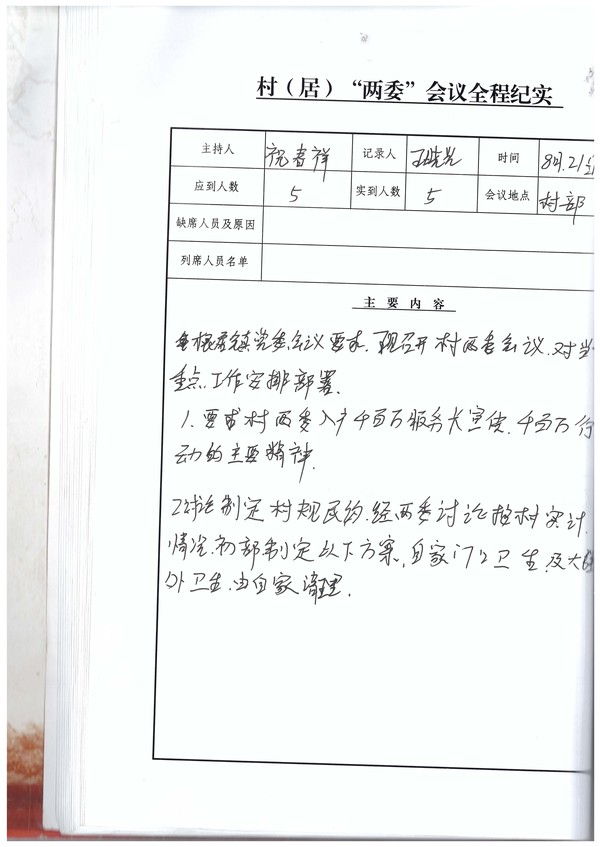 村（居）“两委”会议全程纪实
主持人 祝春祥 记录人 时间 8月21
应到人数 5 实到人数 5 会议地点 村部
缺席人员及原因
列席人员名单
主要内容
根据镇党委会议要求，现召开村两委会议，对当
重点工作安排部署。
1、要求村两委入户千百万服务大宣传，千百万行
动的主要精神。
2、讨论制定村规民约，经两委讨论按村实计
情况，初部制定以下方案，自家门口卫生及大
外卫生，由自家清理。